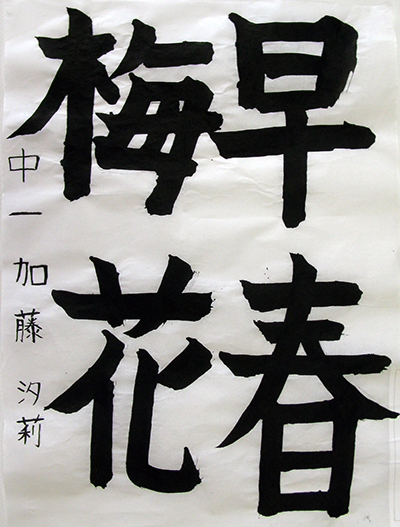 早春
梅花
中一 加藤 汐莉